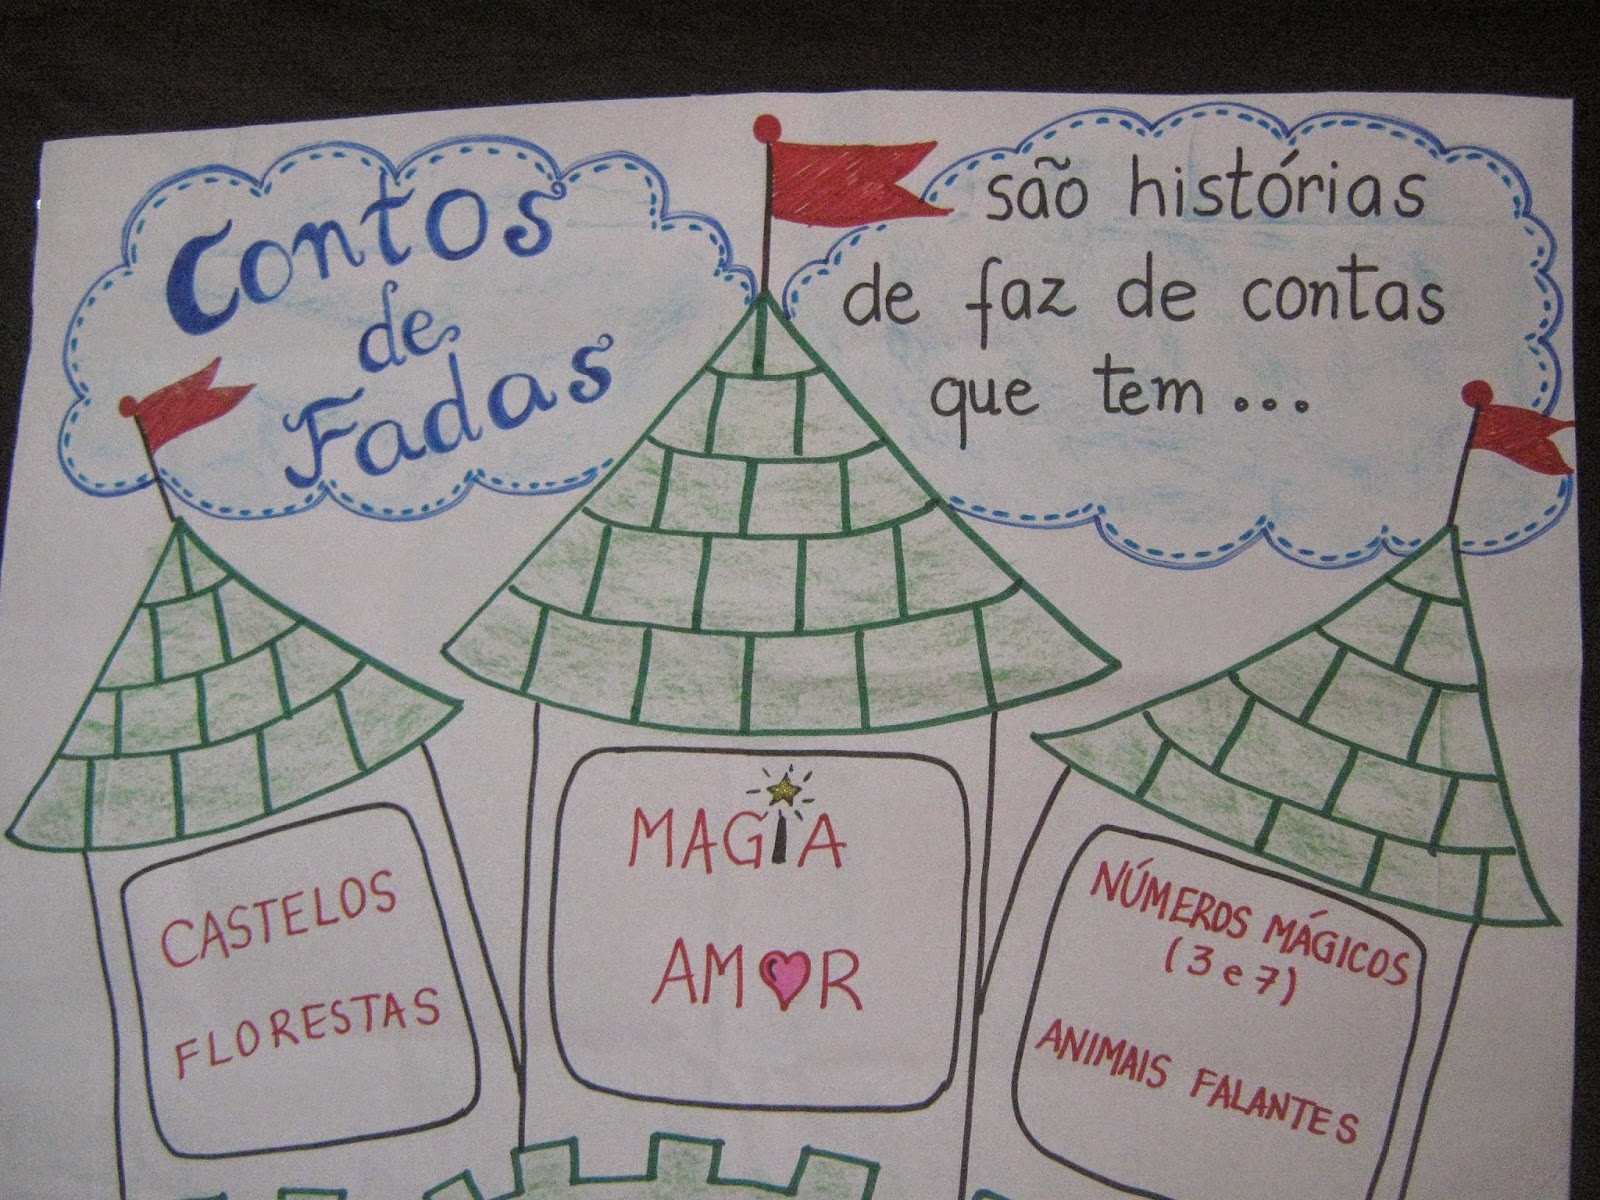 Contos
de
Fadas
são histórias
de faz de contas
que tem...
CASTELOS
FLORESTAS
MAGIA
AMOR
NÚMEROS MÁGICOS
(3 e 7)
ANIMAIS FALANTES